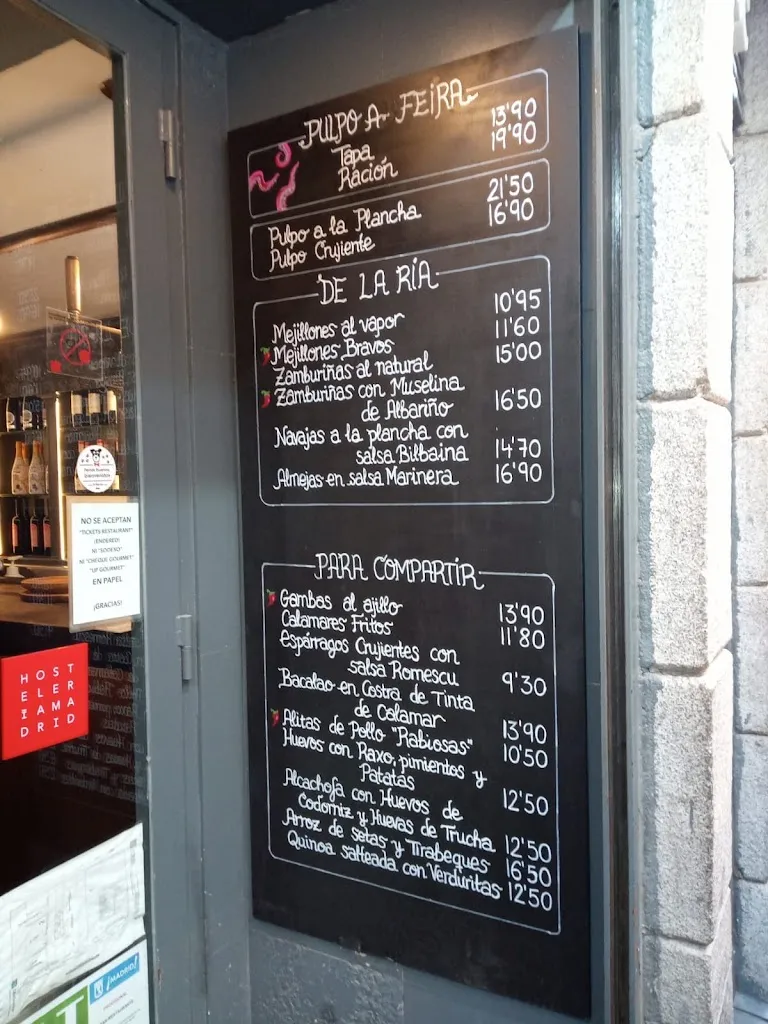 PULPO A FEIRA
Tapa 13'90
Ración 19'90
Pulpo a la Plancha 21'50
Pulpo Crujiente 16'90
DE LA RÍA
Mejillones al vapor 10'95
Mejillones Bravos 11'60
Zamburiñas al natural 15'00
Zamburiñas con Muselina
de Albariño 16'50
Navajas a la plancha con
salsa Bilbaina 14'70
Almejas en salsa Marinera 16'90
PARA COMPARTIR
Gambas al ajillo 13'90
Calamares Fritos 11'80
Espárragos Crujientes con
salsa Romescu 9'30
Bacalao en Costra de Tinta
de Calamar 13'90
Alitas de Pollo "Rabiosas" 10'50
Huevos con Raxo, pimientos y
Patatas 12'50
Alcachofa con Huevos de
Codorniz y Huevas de Trucha 12'50
Arroz de setas y Tirabeques 16'50
Quinoa salteada con Verduritas 12'50
NO SE ACEPTAN
"TICKETS RESTAURANT"
(ENDERED)
NI "SODEXO"
NI "CHEQUE GOURMET"
"UP GOURMET"
EN PAPEL
¡GRACIAS!
HOST
ELER
EIAM
ADRID
¡MADRID!